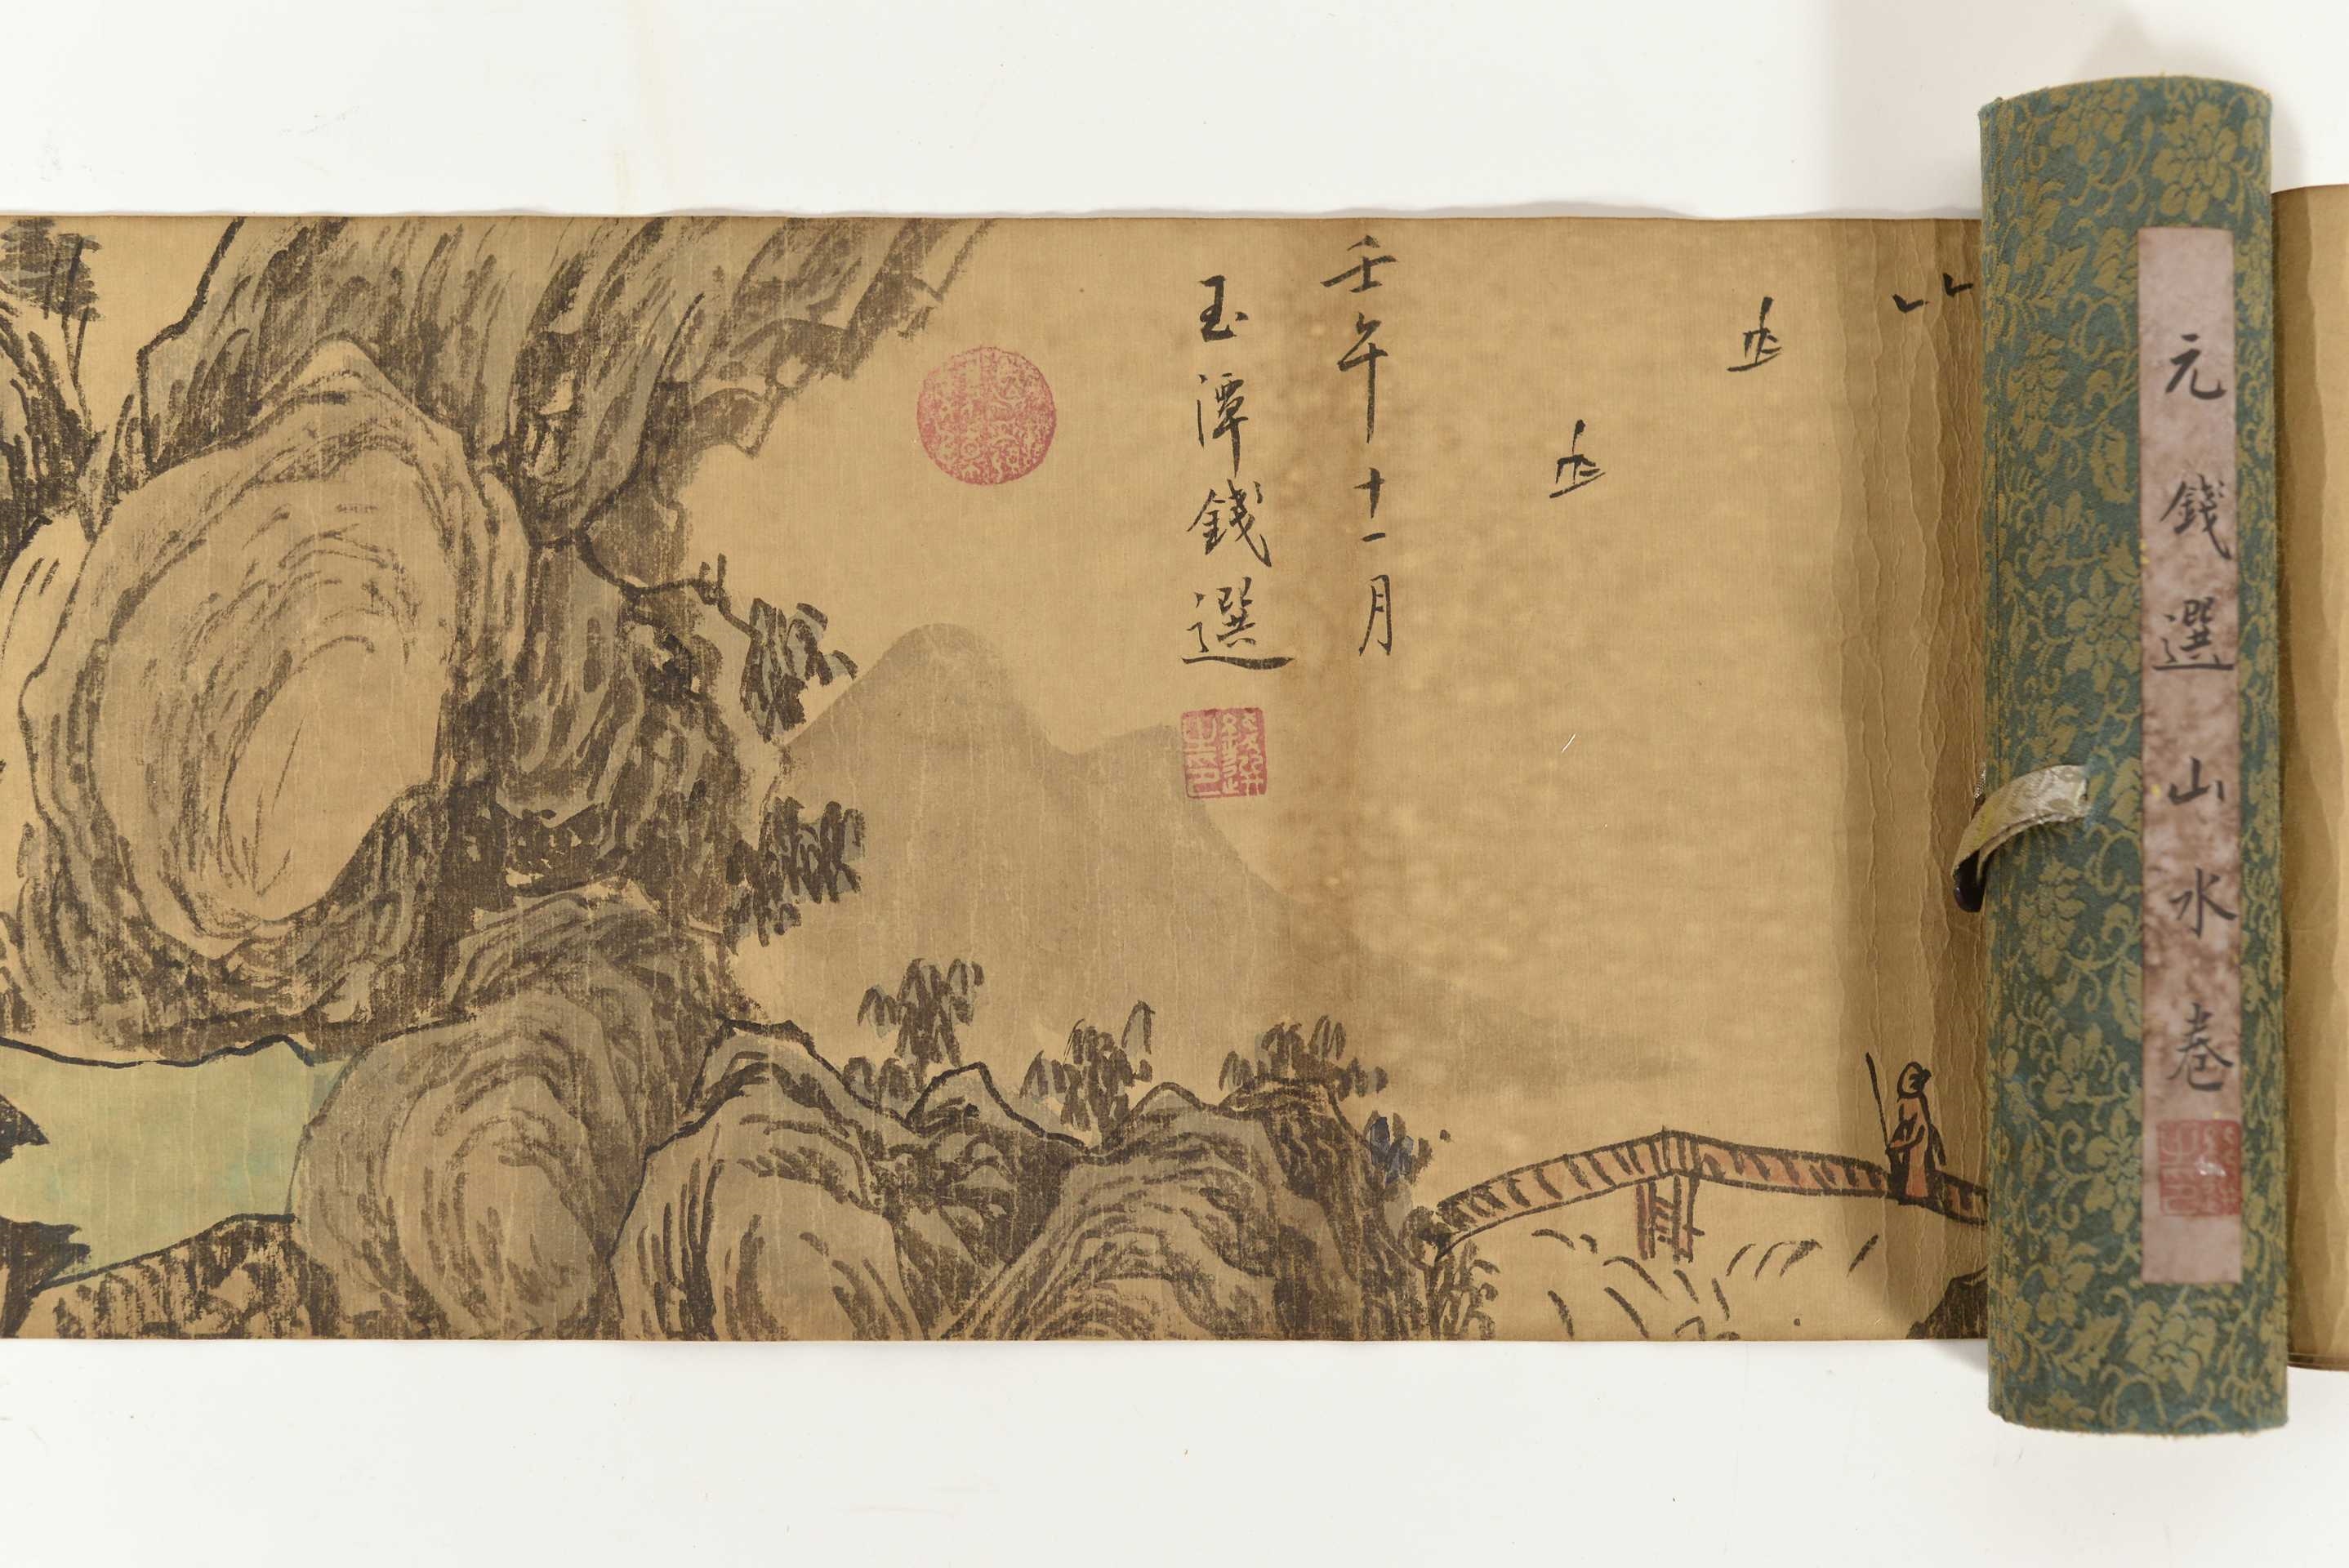 元錢選山水卷
壬午十一月
玉潭錢選